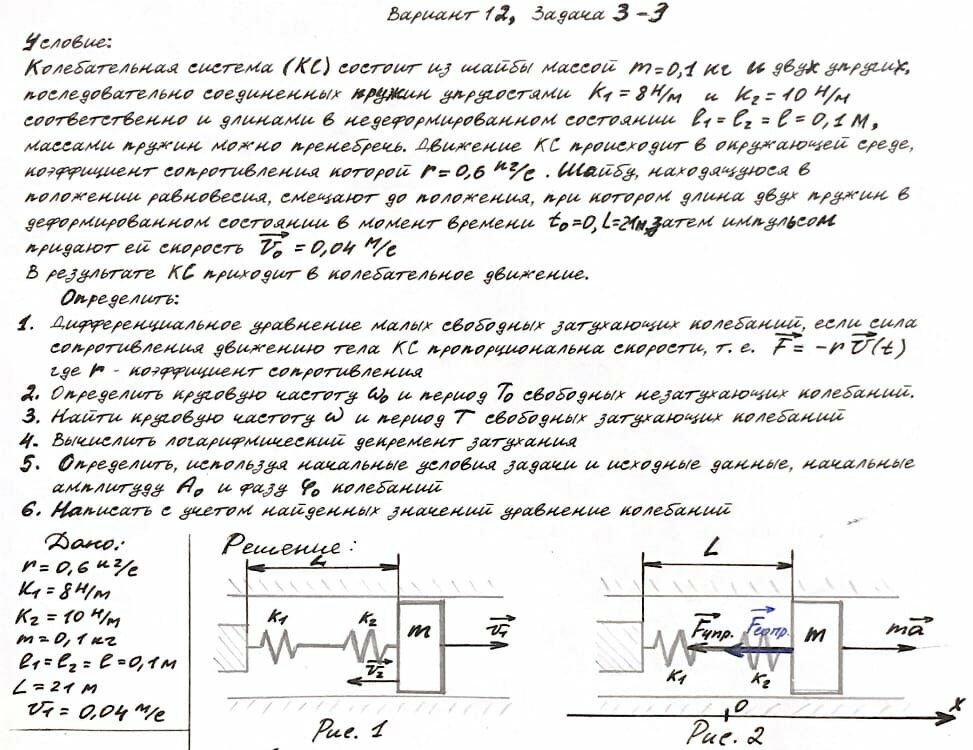 Вариант 12, Задача 3-3
Условие:
Колебательная система (КС) состоит из шайбы массой m=0,1 кг и двух упругих,
последовательно соединенных пружин упругостями K1=8 Н/м и K2=10 Н/м
соответственно и длинами в недеформированном состоянии l1=l2=l=0,1 М,
массами пружин можно пренебречь. Движение КС происходит в окружающей среде,
коэффициент сопротивления которой r=0,6 кг/с. Шайбу, находящуюся в
положении равновесия, смещают до положения, при котором длина двух пружин в
деформированном состоянии в момент времени t0=0, L=21м, затем импульсом
придают ей скорость V0 = 0,04 м/с
В результате КС приходит в колебательное движение.
Определить:
1. Дифференциальное уравнение малых свободных затухающих колебаний, если сила
сопротивления движению тела КС пропорциональна скорости, т. е. F = -r V(t)
где r - коэффициент сопротивления
2. Определить круговую частоту ω0 и период T0 свободных незатухающих колебаний.
3. Найти круговую частоту ω и период T свободных затухающих колебаний
4. Вычислить логарифмический декремент затухания
5. Определить, используя начальные условия задачи и исходные данные, начальные
амплитуду A0 и фазу φ0 колебаний
6. Написать с учетом найденных значений уравнение колебаний
Дано:
r=0,6 кг/с
K1=8 Н/м
K2=10 Н/м
m=0,1 кг
l1=l2=l=0,1 м
L=21 м
V1=0,04 м/с
Решение:
L
K1
K2
m
V1
V2
Рис. 1
L
Fупр.
Fсопр.
m
ma
K1
K2
O
x
Рис. 2